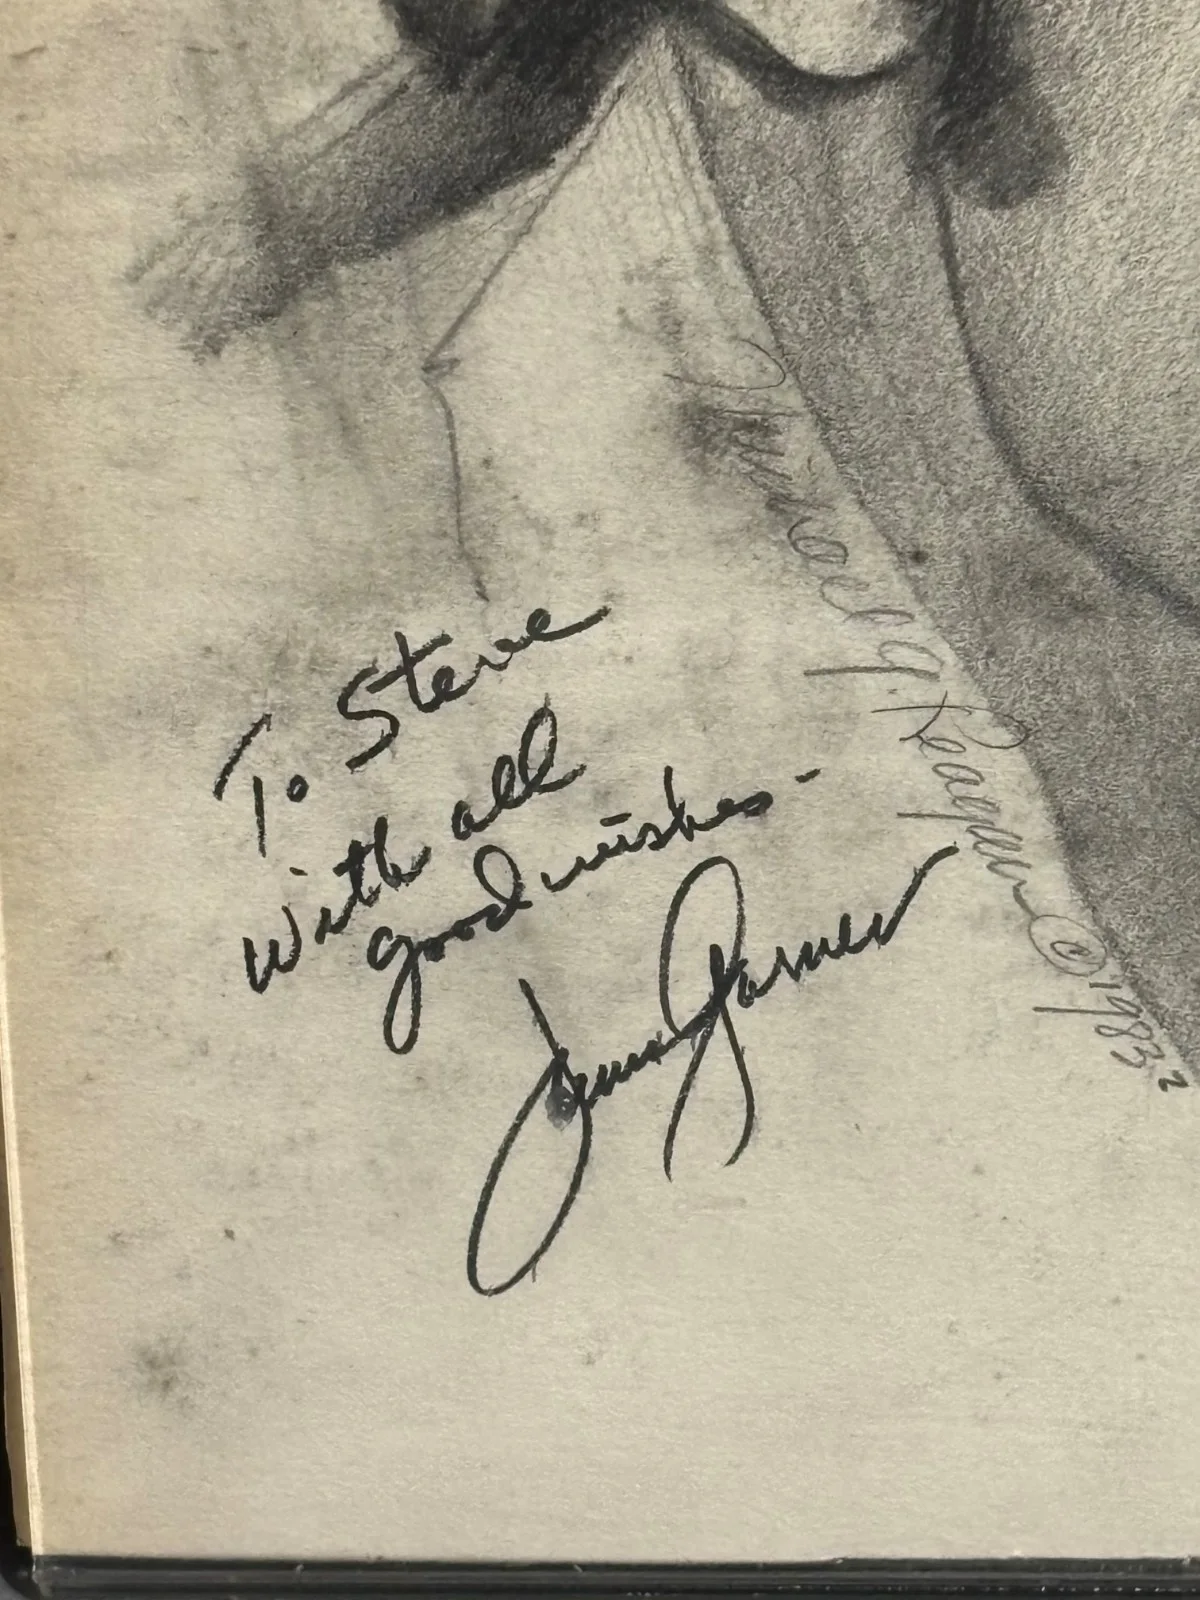 To Steve
With all
good wishes -
James Garner
Thomas G. Reagan © 1983